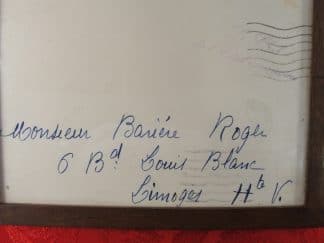 Monsieur Barière Roger
6 Bd Louis Blanc
Limoges Hte V.